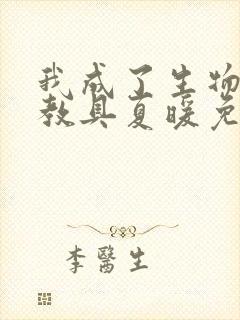 我成了生物
教具夏暖免
李醫生